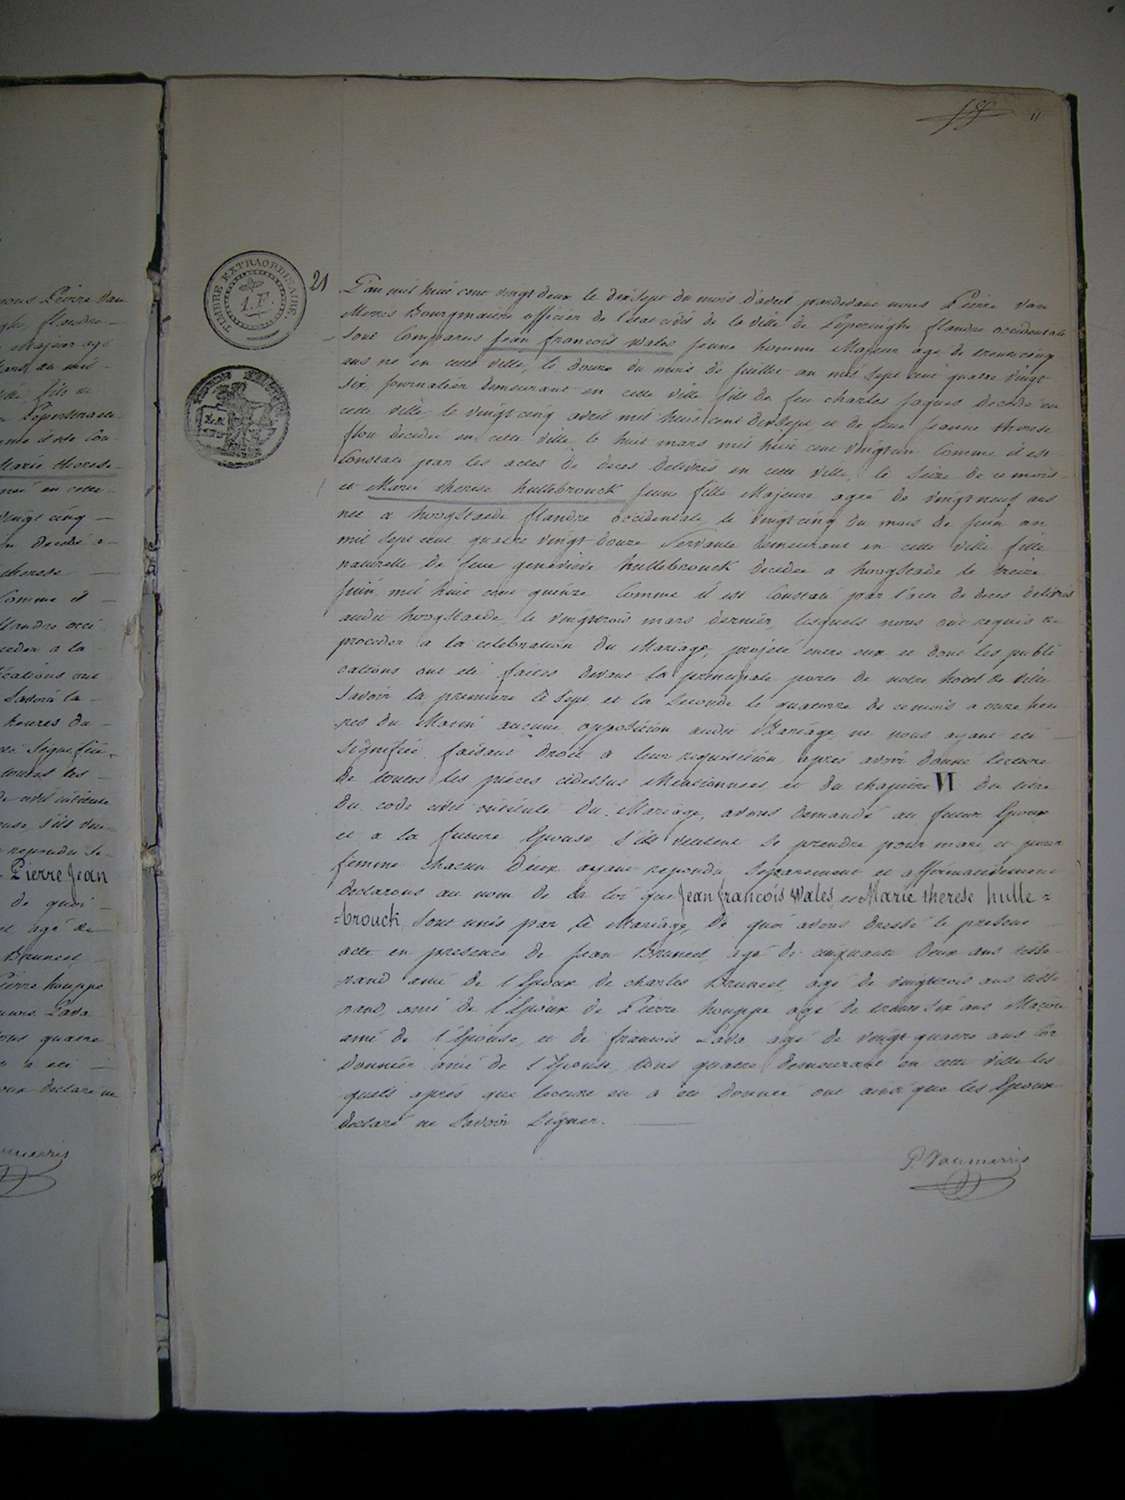 11
TIMBRE EXTRAORDINAIRE
1.F.
21
L'an mil huit cent vingt deux le dix sept du mois d'avril pardevant nous Pierre van
Merris Bourgmaitre officier de l'etat civil de la ville de Poperinghe flandre occidentale
sont Comparus jean francois wales jeune homme Majeur agé de trente cinq
ans né en cette ville, le douze du mois de juillet an mil sept cent quatre vingt
six journalier demeurant en cette ville fils de feu charles jaques decedé en
cette ville le vingt cinq avril mil huit cent dix sept et de feue jeanne therese
flou decedée en cette ville le huit mars mil huit cent vingt un Comme il est
Constaté par les actes de deces delivrés en cette ville, le seize de ce mois
et Marie therese hullebrouck jeune fille Majeure agée de vingt neuf ans
née a hoogstaede flandre occidentale, le vingt cinq du mois de juin an
mil sept cent quatre vingt douze Servante demeurant en cette ville fille
naturelle de feue genevieve hullebrouck decedée a hoogstade le treize
juin mil huit cent quinze Comme il est Constaté par l'acte de deces delivré
audit hoogstaede, le vingt trois mars dernier, lesquels nous ont requis de
proceder a la celebration du Mariage, projeté entre eux et dont les publi
cations ont eté faites devant la principale porte de notre hotel de ville
Savoir la premiere le Sept et la Seconde le quatorze de ce mois a onze heu
res du Matin aucune opposition audit Mariage ne nous ayant eté
signifiée faisant droit a leur requisition, après avoir donné lecture
de toutes les pièces cidessus Mentionnées et du chapitre VI du titre
du code civil intitulé du Mariage, avons demandé au futur Epoux
et a la future Epouse S'ils veulent se prendre pour mari et pour
femme chacun d'eux ayant repondu Separement et affirmativement
declarons au nom de la loi que Jean francois Wales, et Marie therese hulle=
brouck, sont unis par le Mariage, De quoi avons dressé le present
acte en presence de jean Bruneel, agé de cinquante deux ans tisse
rand ami de l'Epoux de charles Bruneel, agé de vingt trois ans tisse
rand, ami de l'Epoux de Pierre houppe agé de trente six ans Macon
ami de l'Epouse, et de francois Lava agé de vingt quatre ans Cor
donnier ami de l'Epouse, tous quatre demeurant en cette ville les
quels après que lecture en a eté donnée ont ainsi que les Epoux
declaré ne Savoir Signer.
P. Vanmerris
Pierre Jean
de quoi
agé de
Bruneel
Pierre houppe
Lava
quatre
a eté